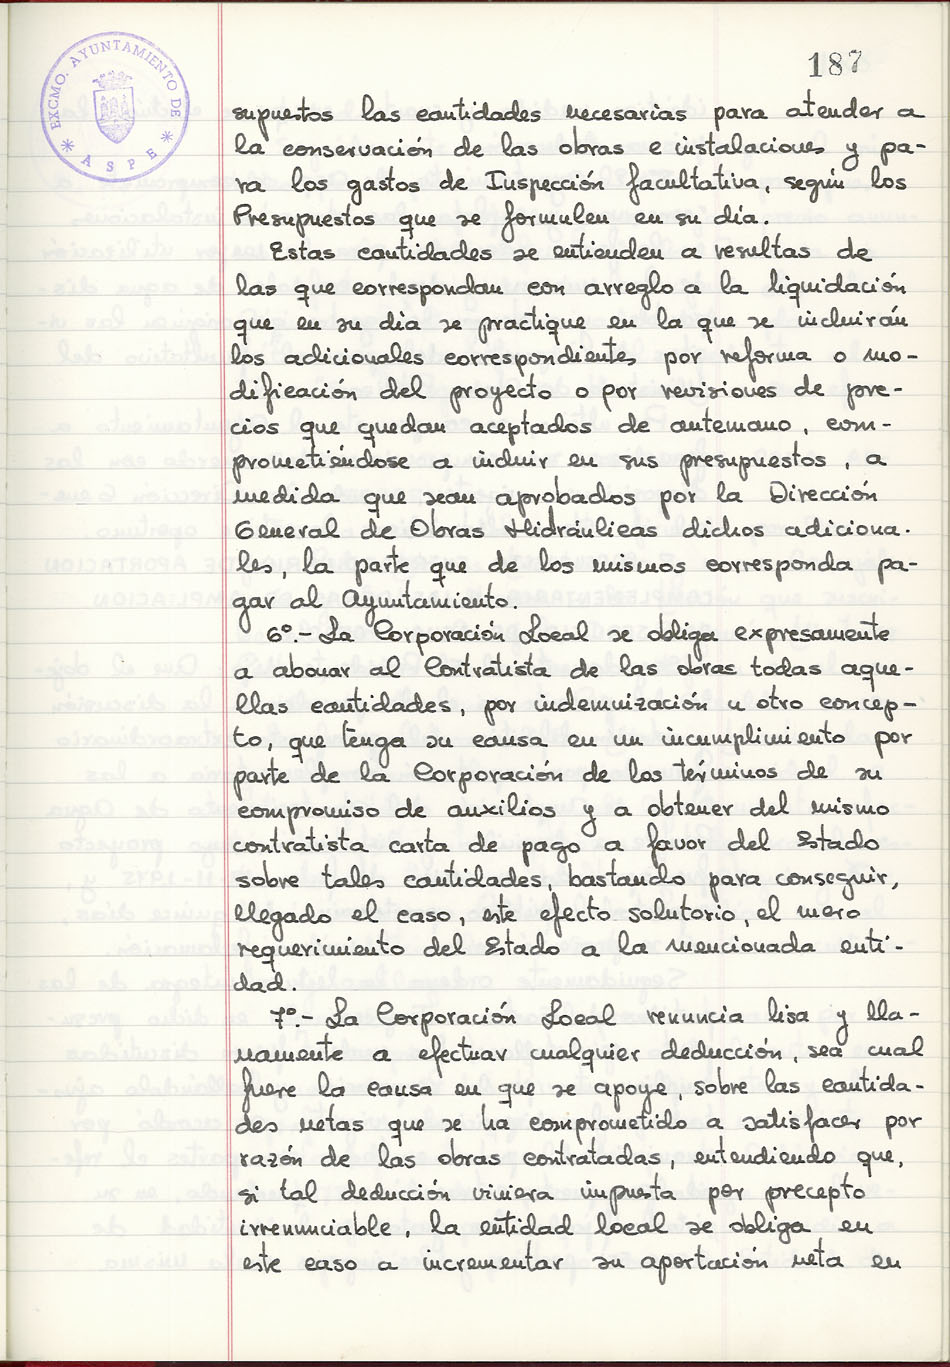 EXCMO. AYUNTAMIENTO DE
* ASPE *
187
supuestos las cantidades necesarias para atender a
la conservación de las obras e instalaciones y pa-
ra los gastos de Inspección facultativa, según los
Presupuestos que se formulen en su día.
Estas cantidades se entienden a resultas de
las que correspondan con arreglo a la liquidación
que en su día se practique en la que se incluirán
los adicionales correspondientes por reforma o mo-
dificación del proyecto o por revisiones de pre-
cios que quedan aceptados de antemano, com-
prometiéndose a incluir en sus presupuestos, a
medida que sean aprobados por la Dirección
General de Obras Hidráulicas dichos adiciona-
les, la parte que de los mismos corresponda pa-
gar al Ayuntamiento.
6º.- La Corporación Local se obliga expresamente
a abonar al Contratista de las obras todas aque-
llas cantidades, por indemnización u otro concep-
to, que tenga su causa en un incumplimiento por
parte de la Corporación de los términos de su
compromiso de auxilios y a obtener del mismo
contratista carta de pago a favor del Estado
sobre tales cantidades, bastando para conseguir,
llegado el caso, este efecto solutorio, el mero
requerimiento del Estado a la mencionada enti-
dad.
7º.- La Corporación Local renuncia lisa y lla-
namente a efectuar cualquier deducción, sea cual
fuere la causa en que se apoye, sobre las cantida-
des netas que se ha comprometido a satisfacer por
razón de las obras contratadas, entendiendo que,
si tal deducción viniera impuesta por precepto
irrenunciable, la entidad local se obliga en
este caso a incrementar su aportación neta en